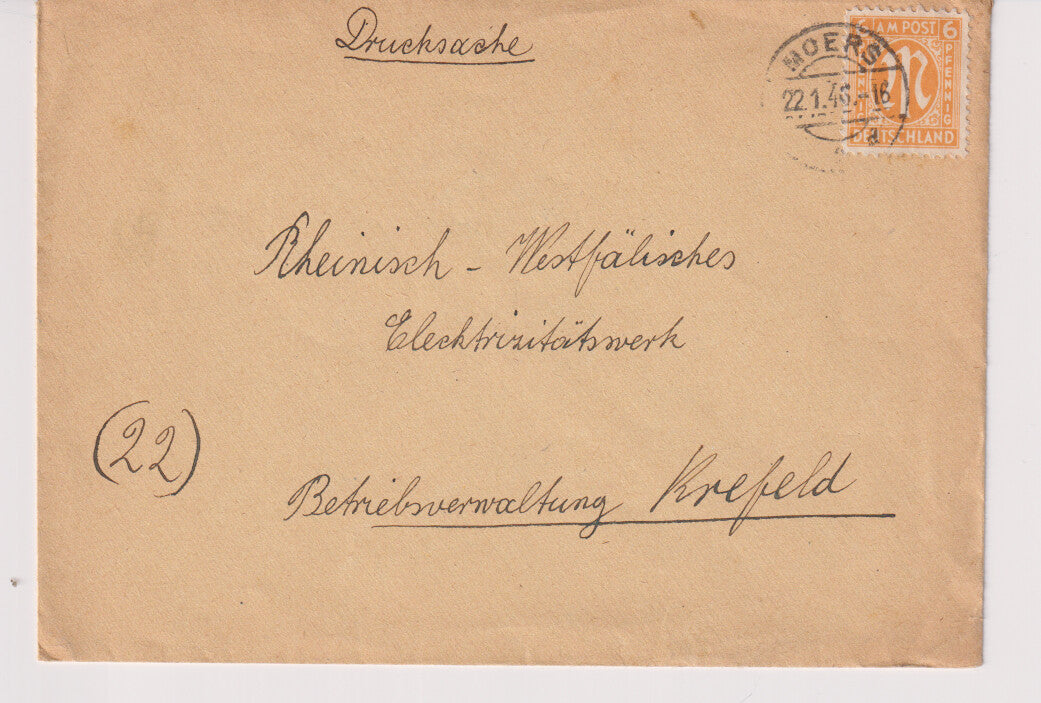 Drucksache
MOERS
22.1.46.-16
a
6 AM POST 6
PFENNIG
M
DEUTSCHLAND
Rheinisch - Westfälisches
Elecktrizitätswerk
(22)
Betriebsverwaltung Krefeld